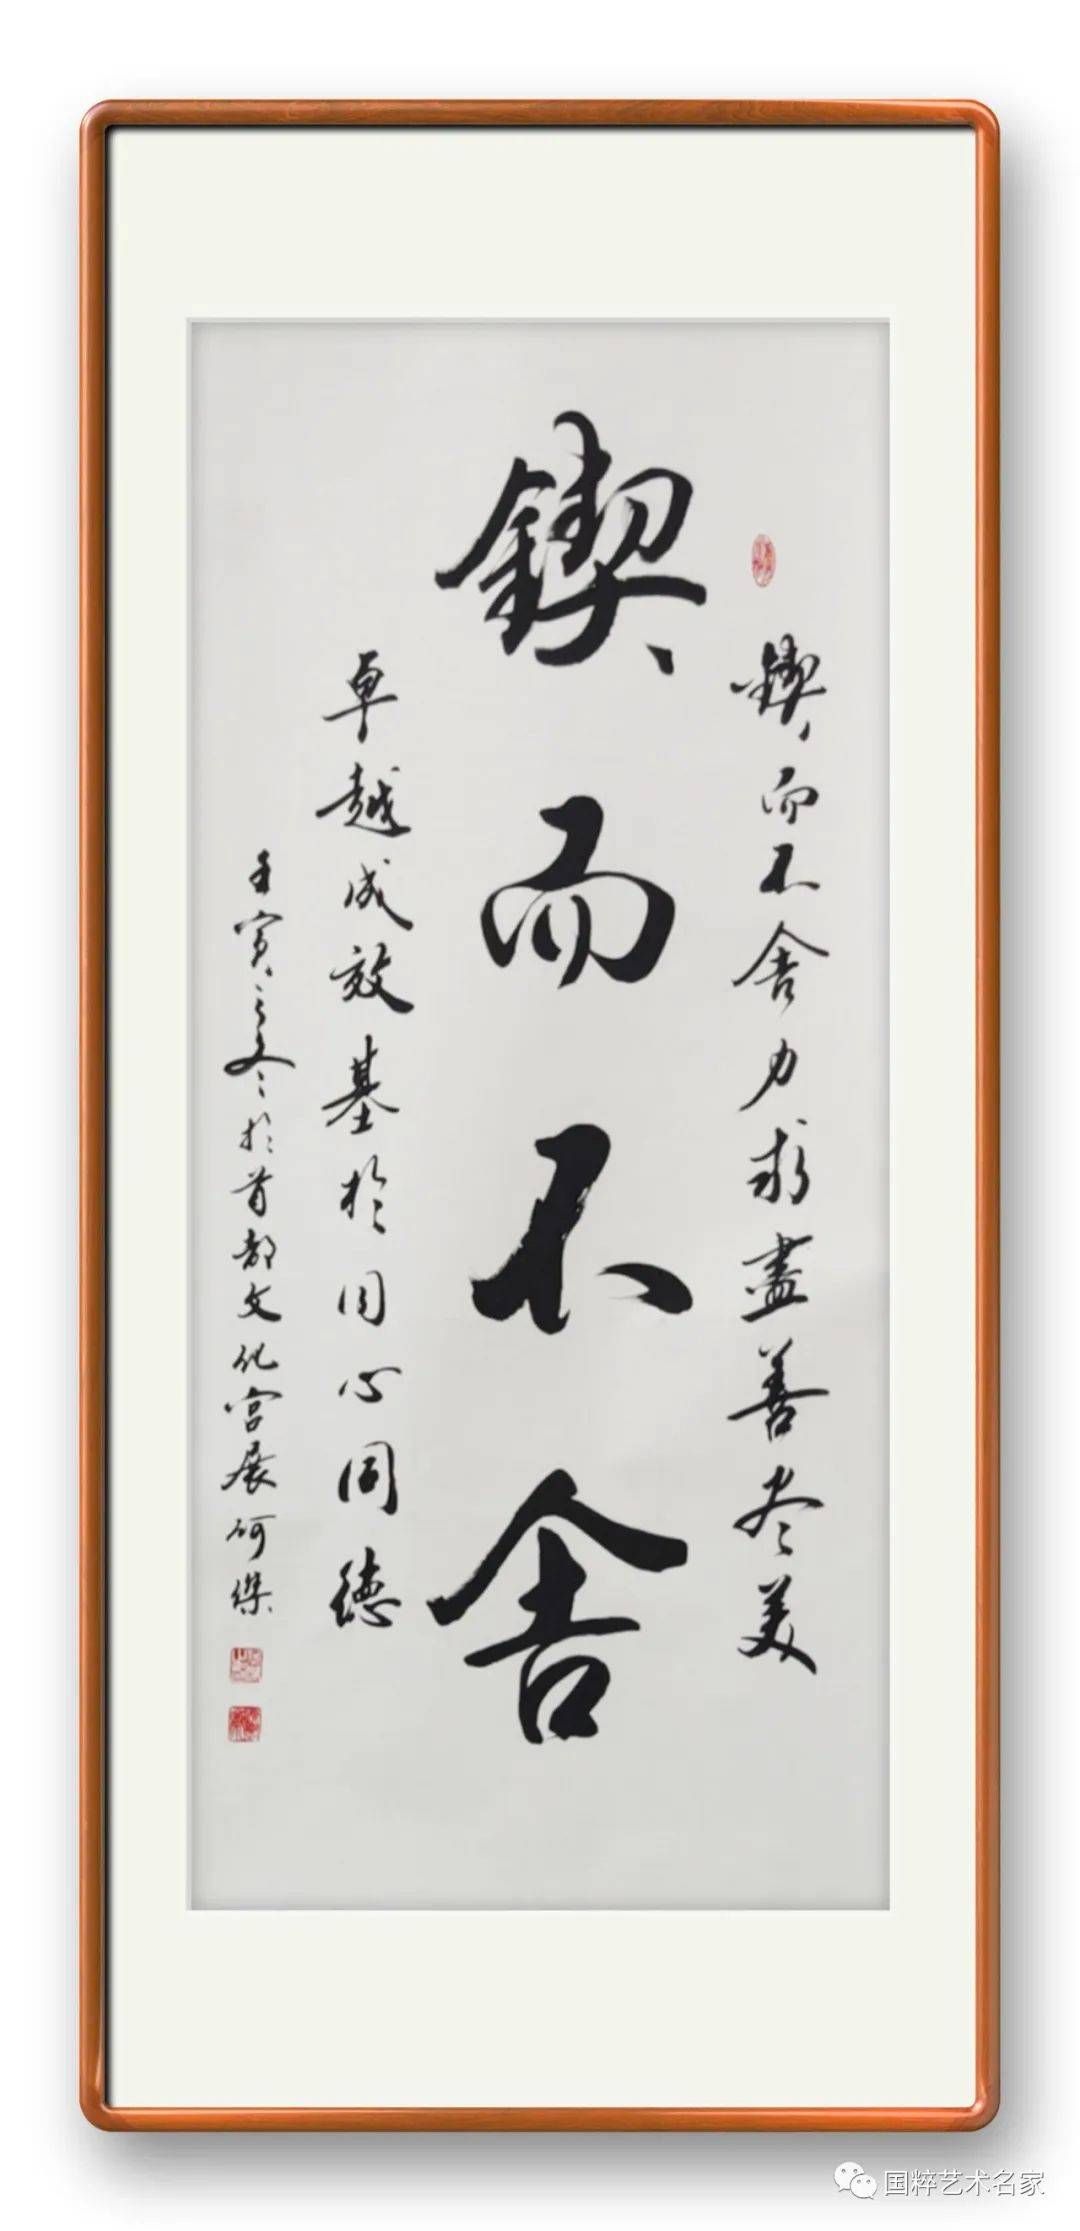 鍥而不舍力求盡善尽美
鍥而不舍
卓越成效基於同心同德
壬寅之冬於首都文化宫展何傑
国粹艺术名家